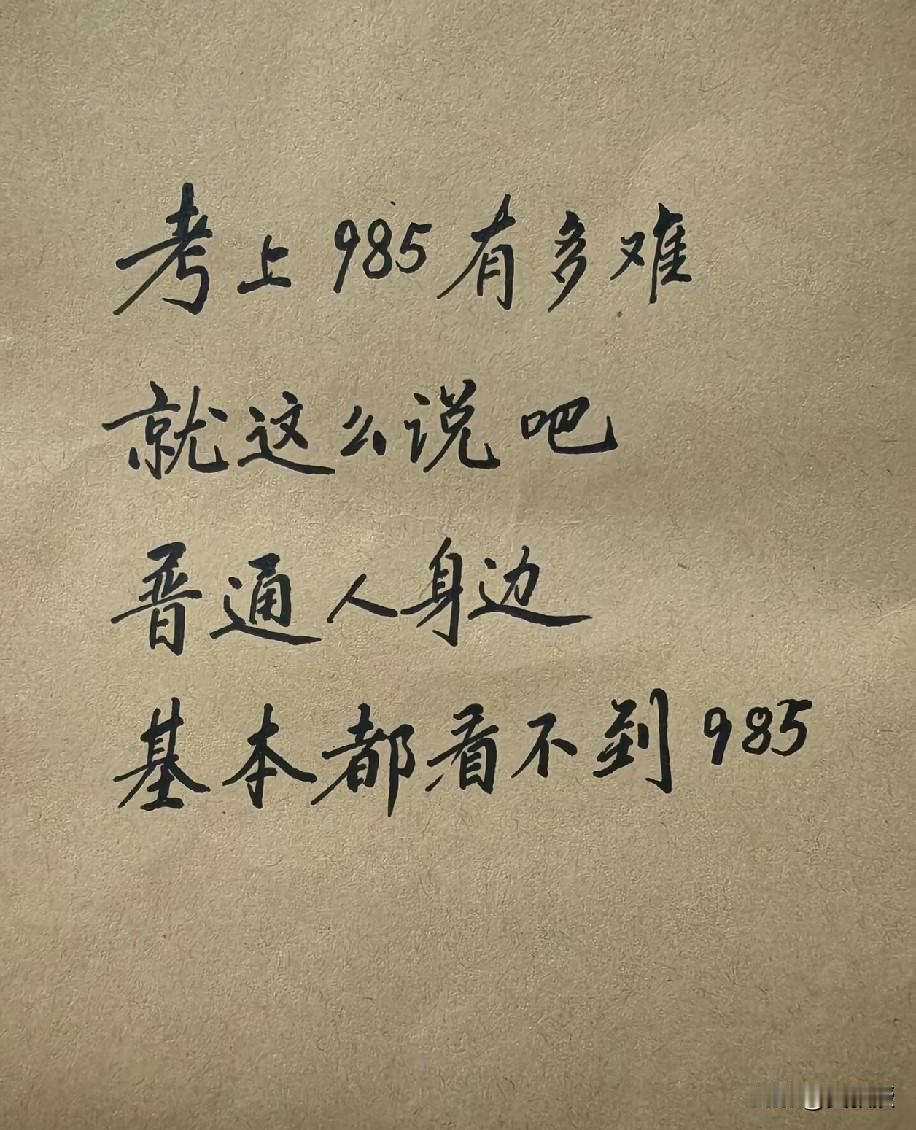 考上985有多难
就这么说吧
普通人身边
基本都看不到985